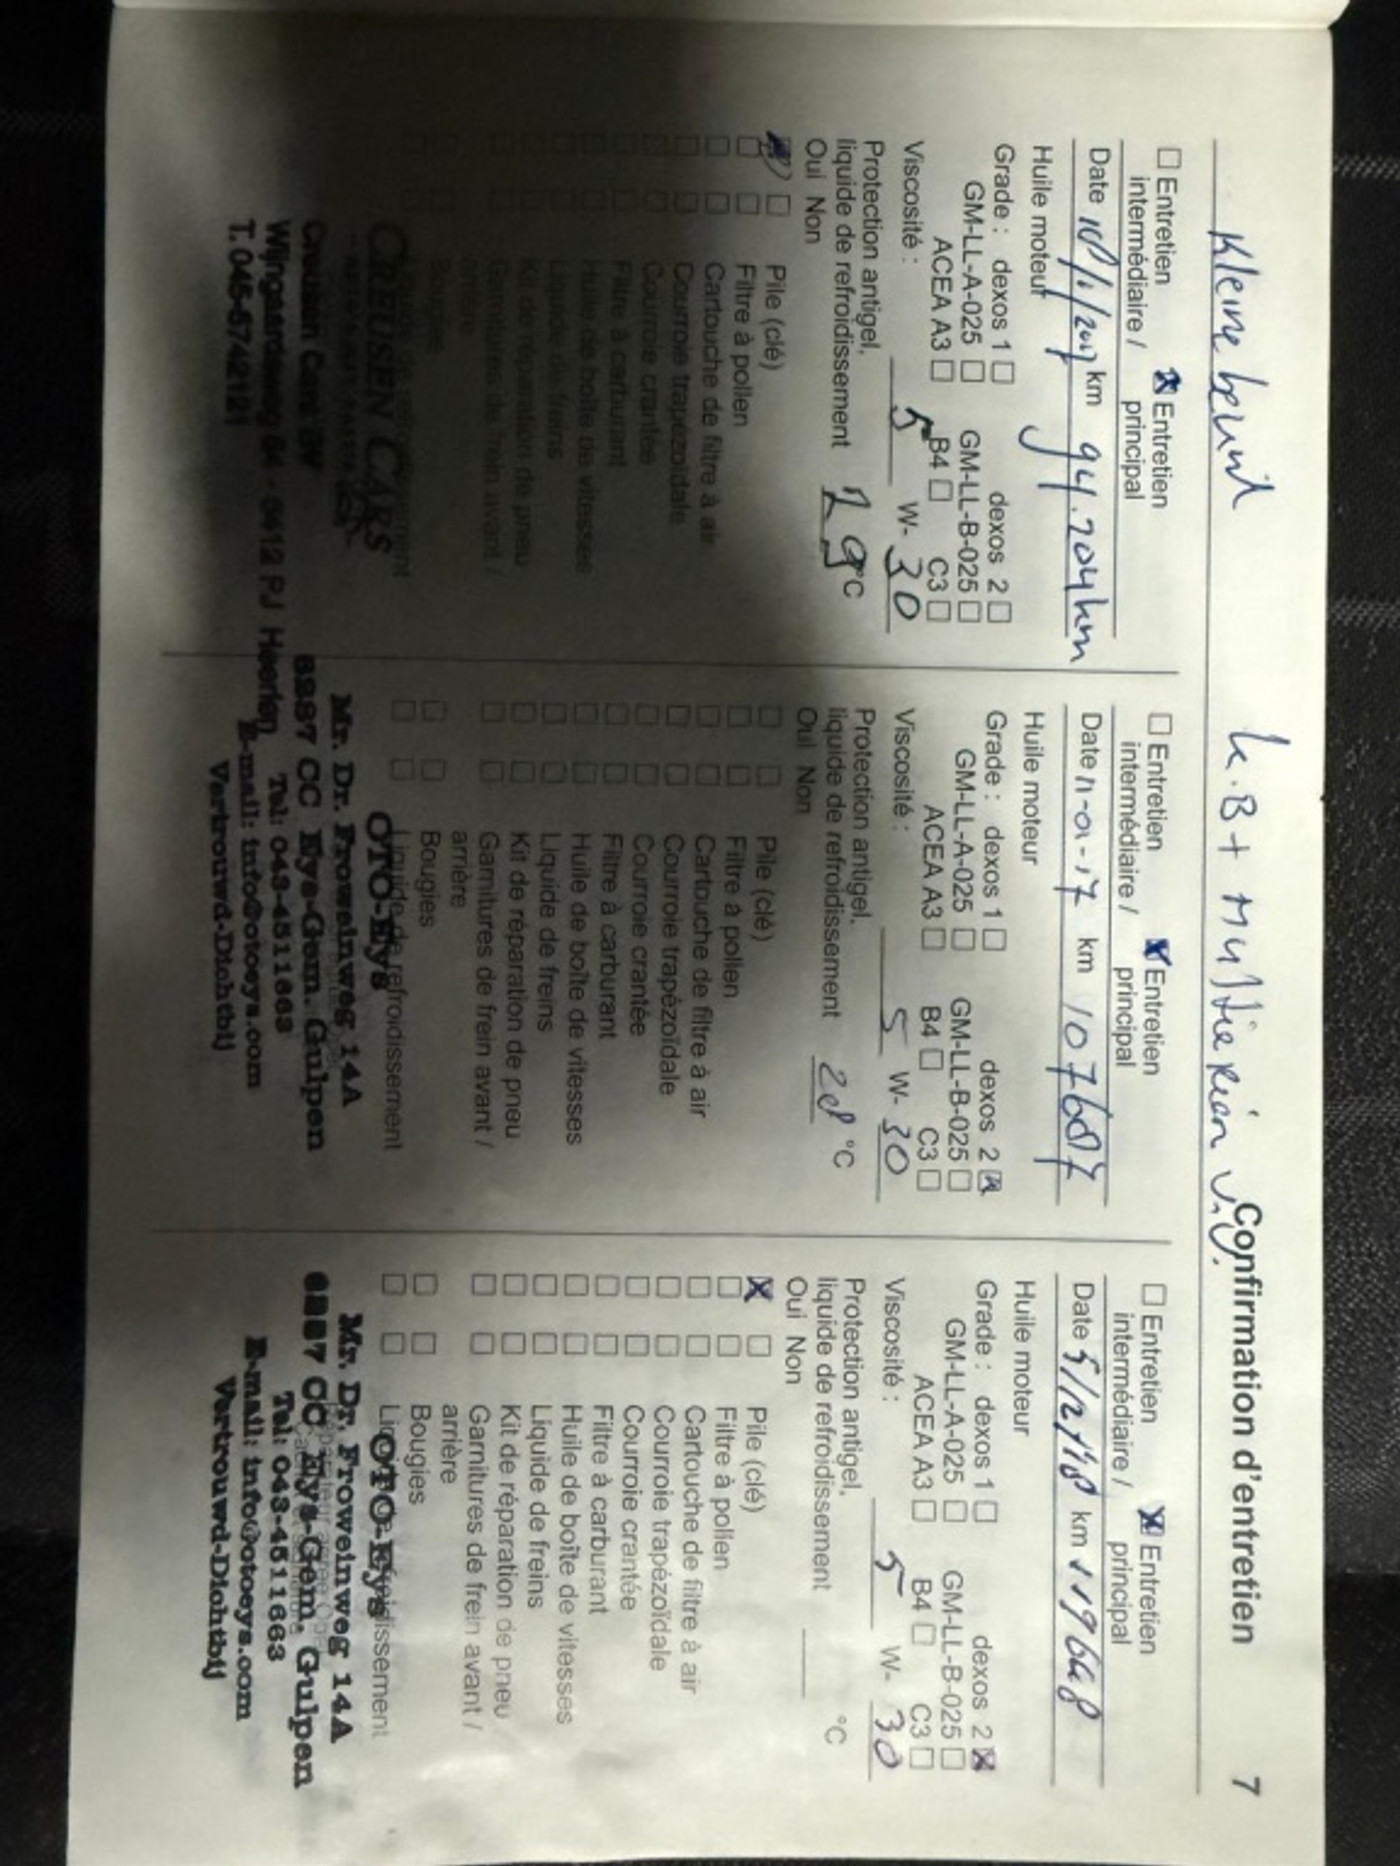 Confirmation d'entretien 7
Kleine beurt
K.B + Multiriem v.v.
Entretien intermédiaire /
Entretien principal
Date 10/1/2017 km 94.204 km
Huile moteur
Grade : dexos 1 dexos 2
GM-LL-A-025 GM-LL-B-025
ACEA A3 B4 C3
Viscosité : 5 W- 30
Protection antigel,
liquide de refroidissement 29 °C
Oui Non
Pile (clé)
Filtre à pollen
Cartouche de filtre à air
Courroie trapézoïdale
Courroie crantée
Filtre à carburant
Huile de boîte de vitesses
Liquide de freins
Kit de réparation de pneu
Garnitures de frein avant /
CREUSEN CARS
Creusen Cars BV
Wijngaardsweg 64 - 6412 PJ Heerlen
T. 045-5742121
Entretien intermédiaire /
Entretien principal
Date 11-01-17 km 107687
Huile moteur
Grade : dexos 1 dexos 2
GM-LL-A-025 GM-LL-B-025
ACEA A3 B4 C3
Viscosité : 5 W- 30
Protection antigel,
liquide de refroidissement 28 °C
Oui Non
Pile (clé)
Filtre à pollen
Cartouche de filtre à air
Courroie trapézoïdale
Courroie crantée
Filtre à carburant
Huile de boîte de vitesses
Liquide de freins
Kit de réparation de pneu
Garnitures de frein avant /
arrière
Bougies
Liquide de refroidissement
OTO-Eys
Mr. Dr. Froweinweg 14A
6287 CC Eys-Gem. Gulpen
Tel: 043-4511663
E-mail: info@otoeys.com
Vertrouwd-Dichtbij
Entretien intermédiaire /
Entretien principal
Date 5/12/18 km 119668
Huile moteur
Grade : dexos 1 dexos 2
GM-LL-A-025 GM-LL-B-025
ACEA A3 B4 C3
Viscosité : 5 W- 30
Protection antigel,
liquide de refroidissement °C
Oui Non
Pile (clé)
Filtre à pollen
Cartouche de filtre à air
Courroie trapézoïdale
Courroie crantée
Filtre à carburant
Huile de boîte de vitesses
Liquide de freins
Kit de réparation de pneu
Garnitures de frein avant /
arrière
Bougies
Liquide de refroidissement
OTO-Eys
Mr. Dr. Froweinweg 14A
6287 CC Eys-Gem. Gulpen
Tel: 043-4511663
E-mail: info@otoeys.com
Vertrouwd-Dichtbij